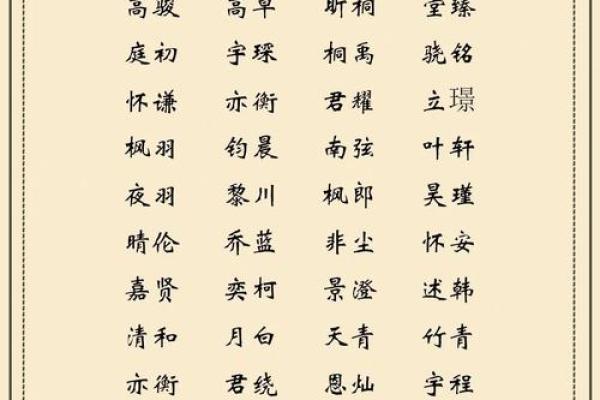 高骏 高卓 昕桐 堂臻
庭初 宇琛 桐禹 骁铭
怀谦 亦衡 君耀 立璟
枫羽 钧晨 南弦 叶轩
夜羽 黎川 枫郎 昊瑾
晴伦 乔蓝 非尘 怀安
嘉贤 奕柯 景澄 述韩
清和 月白 天青 竹青
亦衡 君绕 恩灿 宇程